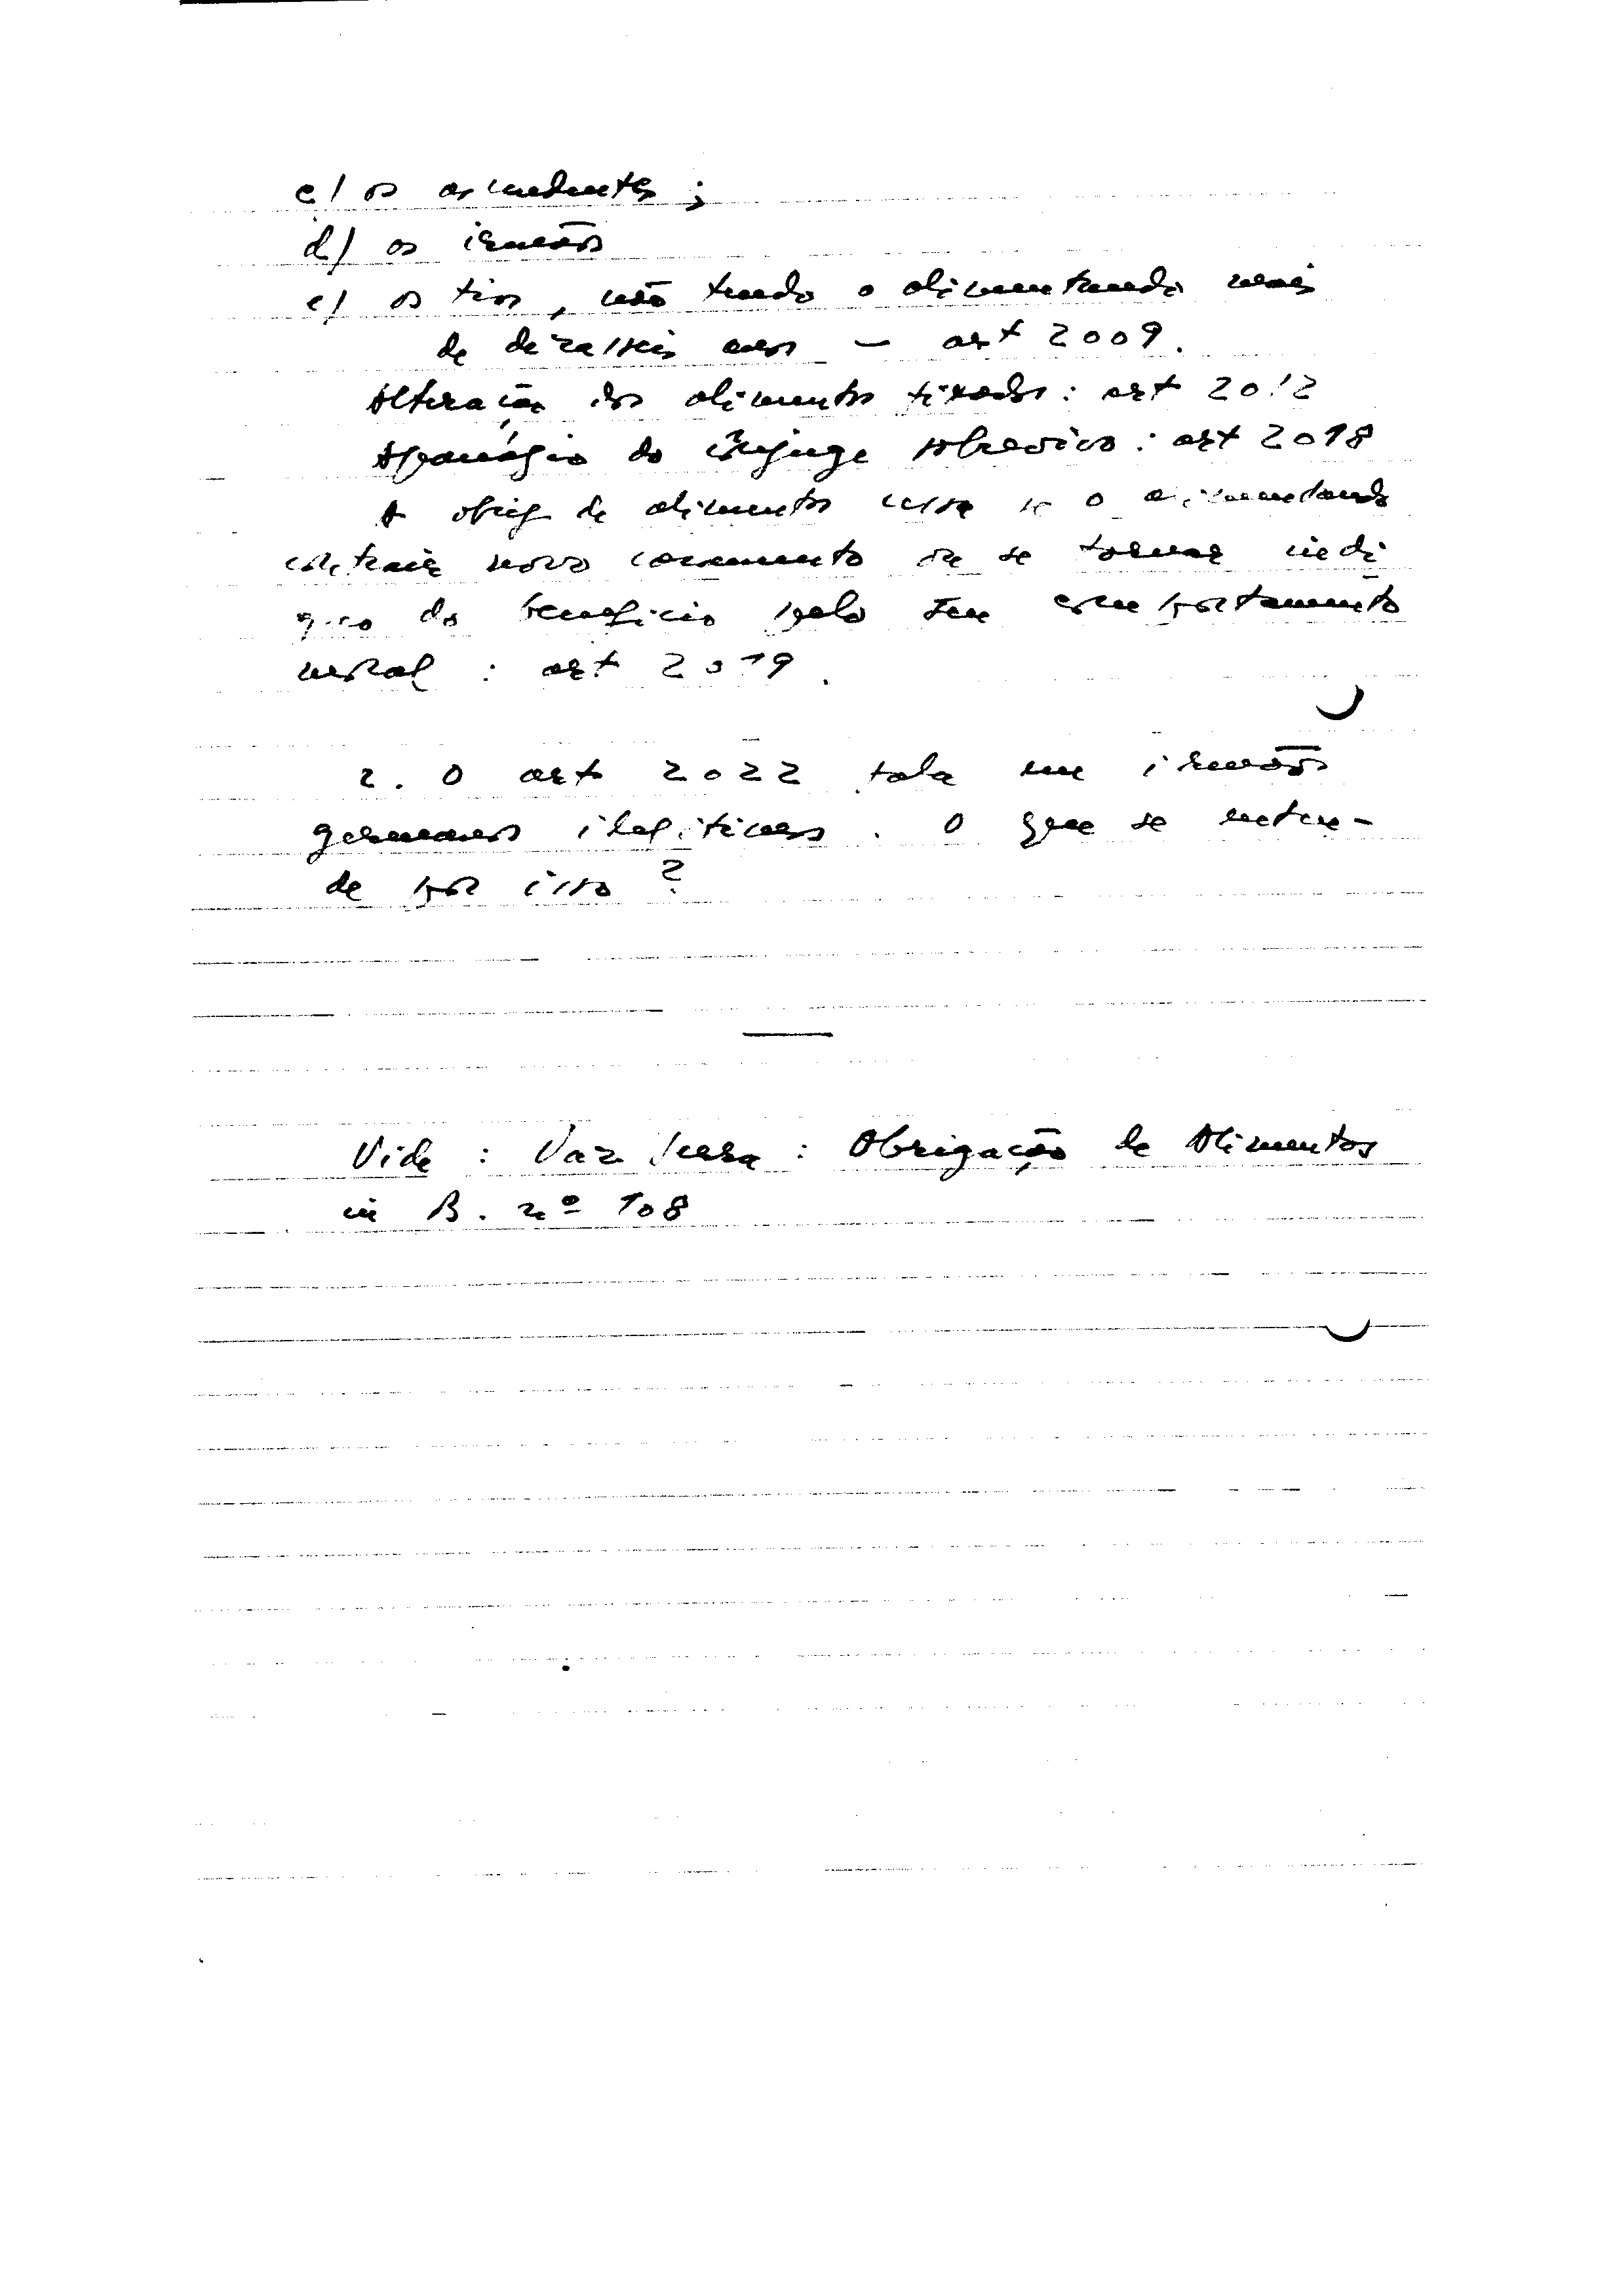 c) os ascendentes;
d) os irmãos
e) os tios, não tendo o alimentando mais
de dezasseis anos — art 2009.
Alteração dos alimentos fixados: art 2012
Apanágio do cônjuge sobrevivo: art 2018
A obrig de alimentos cessa se o alimentando
contrair novo casamento ou se tornar indi
gno do benefício pelo seu comportamento
moral: art 2019.
2. O art 2022 fala em irmãos
germanos ilegítimos. O que se enten-
de por isso?
Vide: Vaz Serra: Obrigação de Alimentos
in B. nº 108